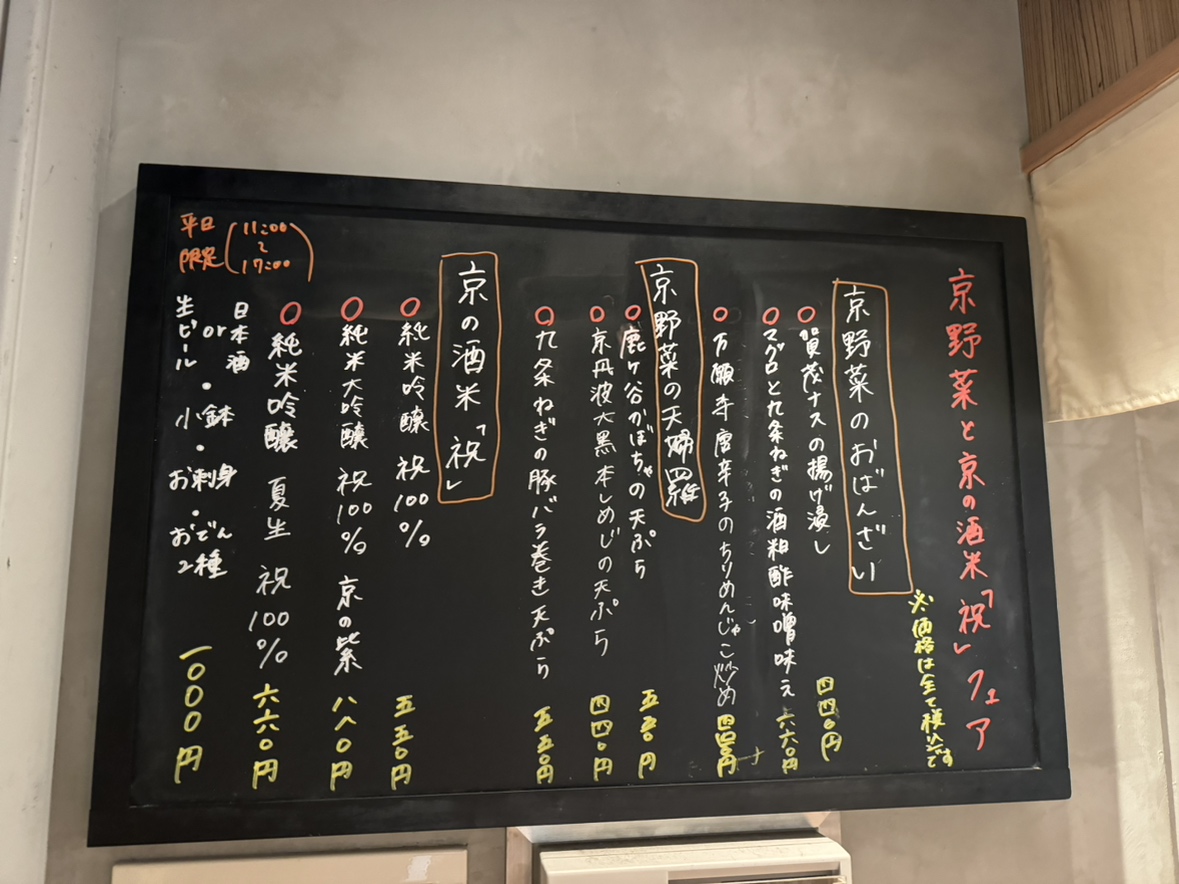 京野菜と京の酒米「祝」フェア
※価格は全て税込です
京野菜のおばんざい
〇賀茂ナスの揚げ浸し 四四〇円
〇マグロと九条ねぎの酒粕酢味噌味え 六六〇円
〇万願寺唐辛子のちりめんじゃこ炒め 四四〇円
京野菜の天婦羅
〇鹿ケ谷かぼちゃの天ぷら 五五〇円
〇京丹波大黒本しめじの天ぷら 四四〇円
〇九条ねぎの豚バラ巻き天ぷら 五五〇円
京の酒米「祝」
〇純米吟醸 祝100% 五五〇円
〇純米大吟醸 祝100% 京の 八八〇円
〇純米吟醸 夏生 祝100% 六六〇円
平日限定(11:00~17:00)
日本酒
or
生ビール
・
小鉢
・
お刺身
・
おでん
2種
一〇〇〇円